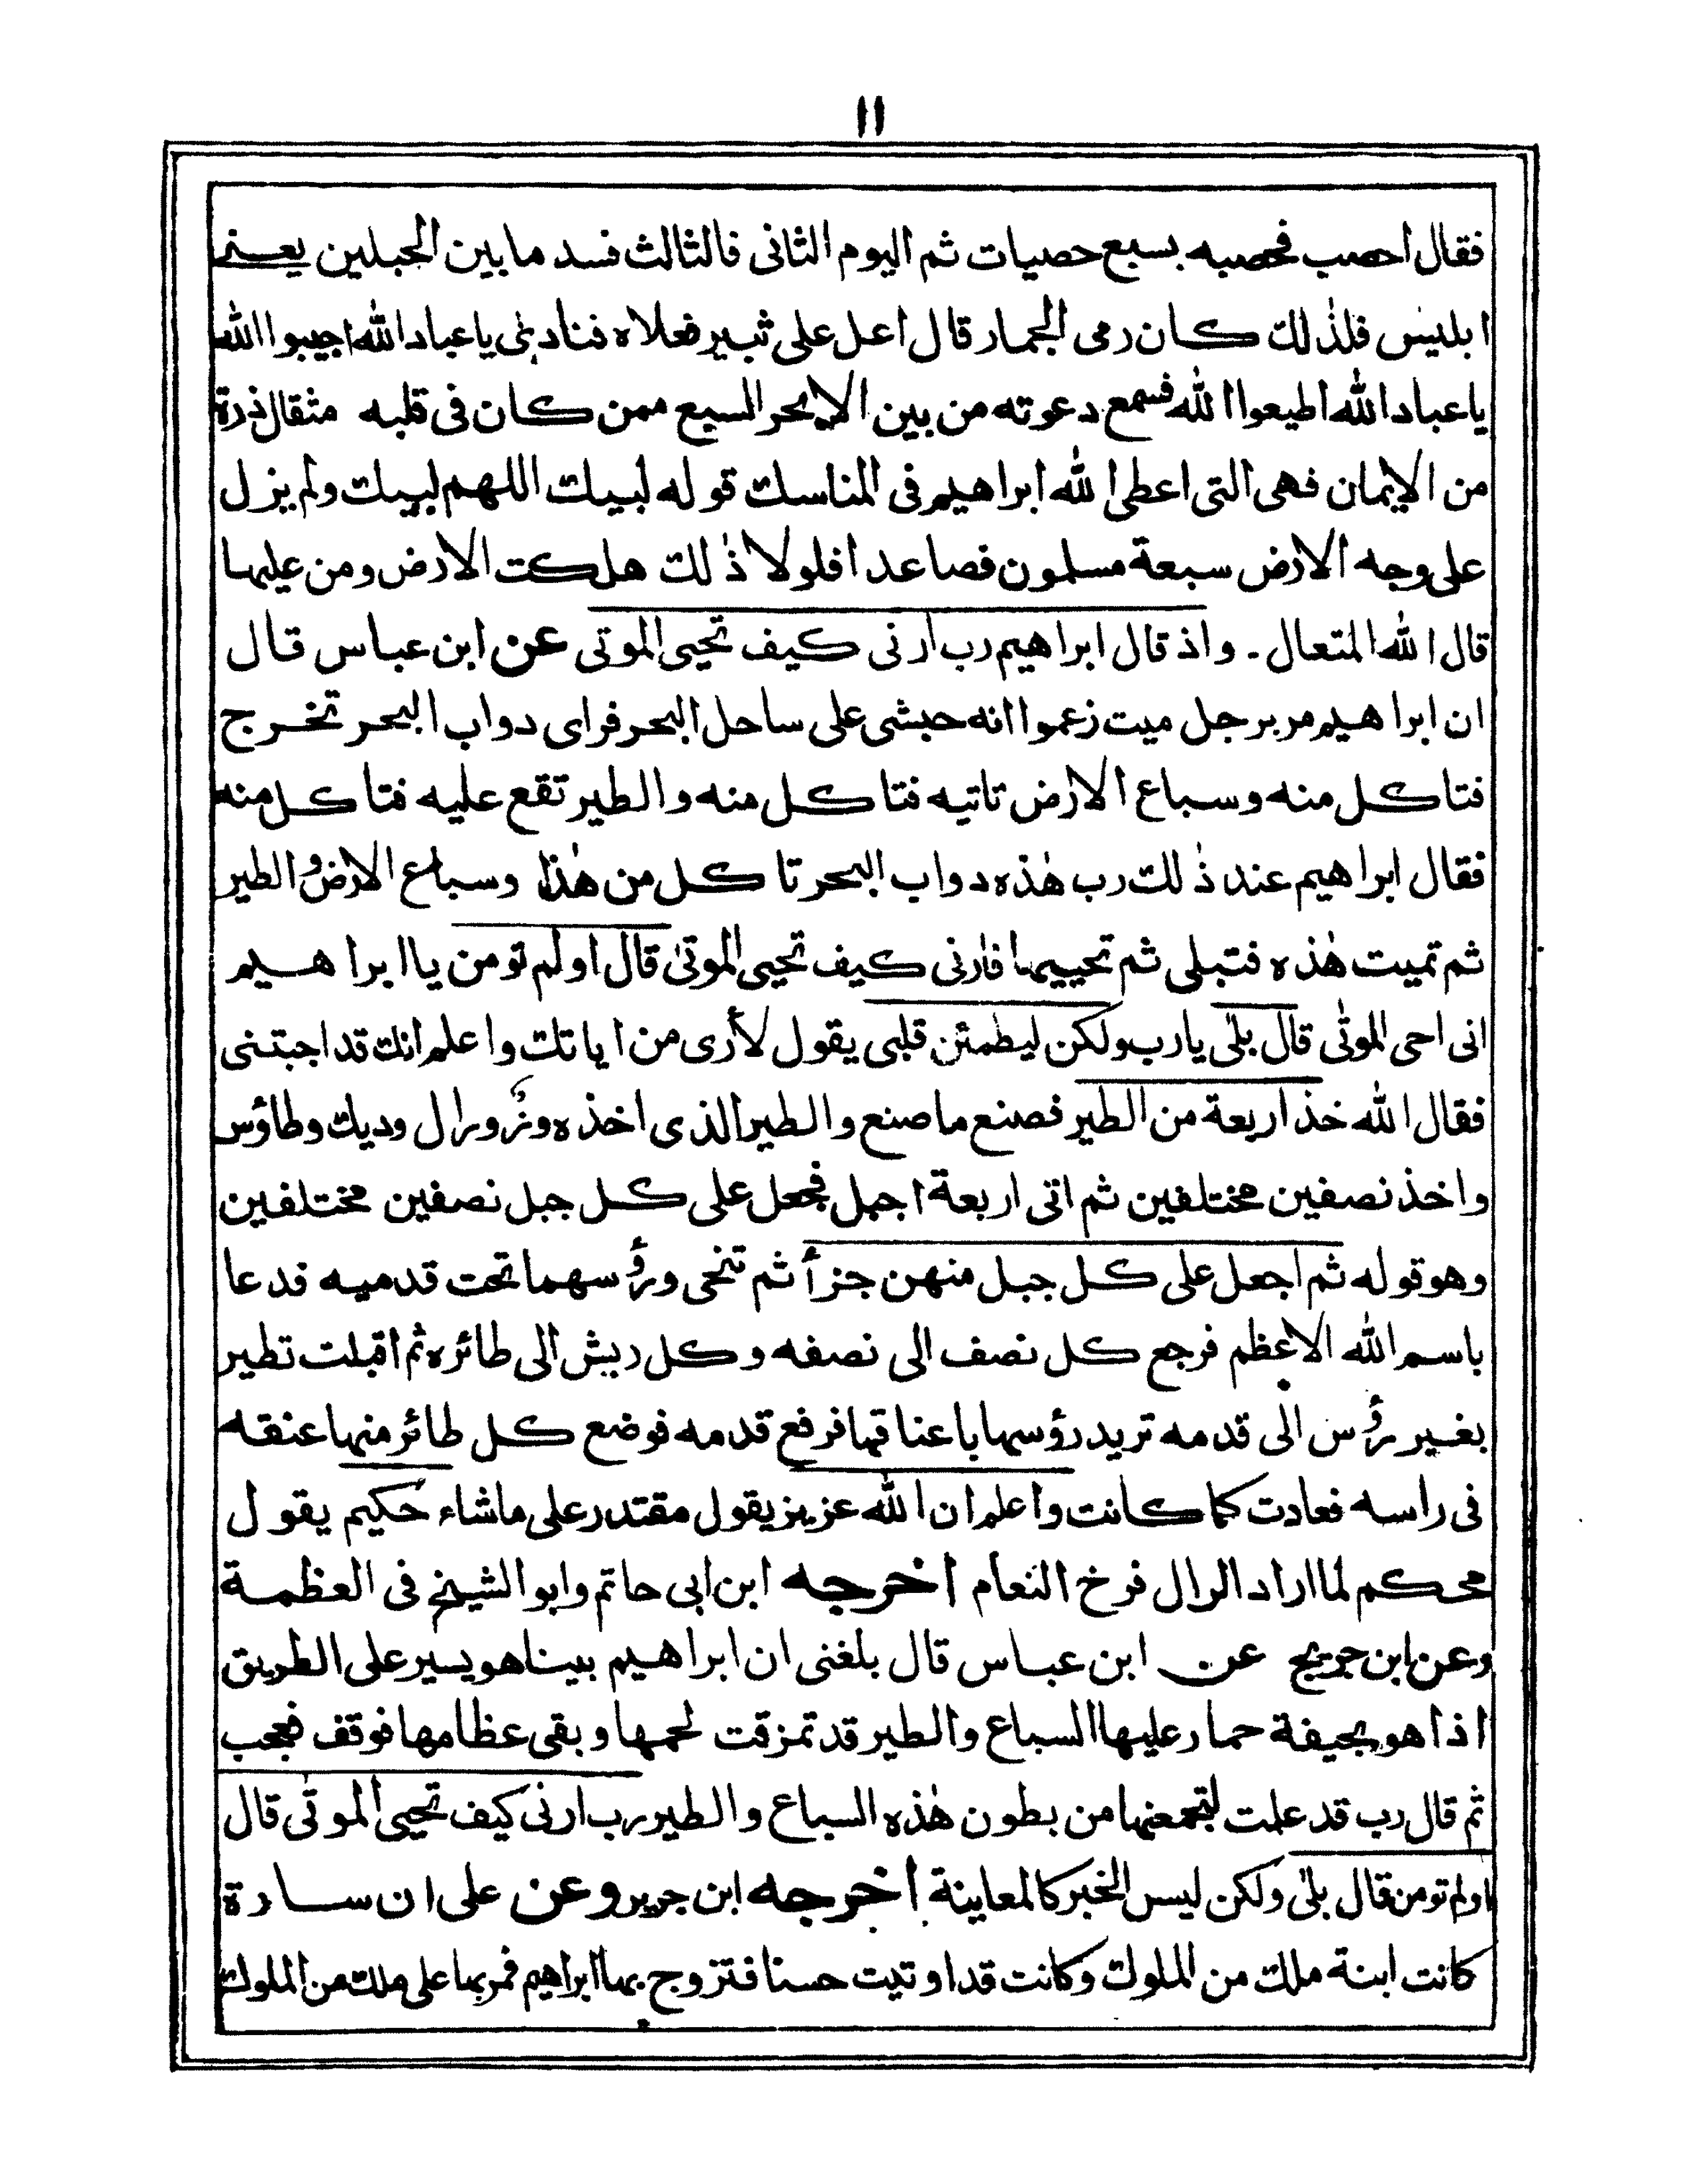 ١١
فقال احصب فحصبه بسبع حصيات ثم اليوم الثانى فالثالث فسد ما بين الجبلين يعنى
ابليس فلذلك كان رمى الجمار قال اعل على ثبير فعلاه فنادى يا عباد الله اجيبوا الله
يا عباد الله اطيعوا الله فسمع دعوته من بين الابحر السبع ممن كان فى قلبه مثقال ذرة
من الايمان فهى التى اعطى الله ابراهيم فى المناسك قوله لبيك اللهم لبيك ولم يزل
على وجه الارض سبعة مسلمون فصاعدا فلولا ذٰلك هلكت الارض ومن عليها
قال الله المتعال ـ واذ قال ابراهيم رب ارنى كيف تحيى الموتى عن ابن عباس قال
ان ابراهيم مر برجل ميت زعموا انه حبشى على ساحل البحر فراى دواب البحر تخرج
فتاكل منه وسباع الارض تاتيه فتاكل منه والطير تقع عليه فتاكل منه
فقال ابراهيم عند ذٰلك رب هٰذه دواب البحر تاكل من هٰذا وسباع الارض والطير
ثم تميت هٰذه فتبلى ثم تحييها فارنى كيف تحيى الموتىٰ قال اولم تومن يا ابراهيم
انى احى الموتٰى قال بلٰى يارب ولكن ليطمئن قلبى يقول لأرى من اياتك واعلم انك قد اجبتنى
فقال الله خذ اربعة من الطير فصنع ما صنع والطير الذى اخذه وزٌ ورال وديك وطاؤس
واخذ نصفين مختلفين ثم اتى اربعة اجبل فجعل على كل جبل نصفين مختلفين
وهو قوله ثم اجعل على كل جبل منهن جزأ ثم تنحى ورؤسهما تحت قدميه فدعا
باسم الله الاعظم فرجع كل نصف الى نصفه وكل ريش الى طائره ثم اقبلت تطير
بغير رؤس الى قدمه تريد رؤسها باعناقها فرفع قدمه فوضع كل طائر منها عنقه
فى راسه فعادت كما كانت واعلم ان الله عزيز يقول مقتدر على ماشاء حكيم يقول
محكم لما اراد الرال فرخ النعام اخرجه ابن ابى حاتم وابو الشيخ فى العظمة
وعن ابن جريج عن ابن عباس قال بلغنى ان ابراهيم بينا هو يسير على الطريق
اذا هو بجيفة حمار عليها السباع والطير قد تمزقت لحمها وبقى عظامها فوقف فعجب
ثم قال رب قد علمت لتجمعنها من بطون هٰذه السباع والطير رب ارنى كيف تحيى الموتٰى قال
اولم تومن قال بلٰى ولكن ليس الخبر كالمعاينة اخرجه ابن جرير وعن على ان سارة
كانت ابنة ملك من الملوك وكانت قد اوتيت حسنا فتزوج بها ابراهيم فمر بها على ملك من الملوك